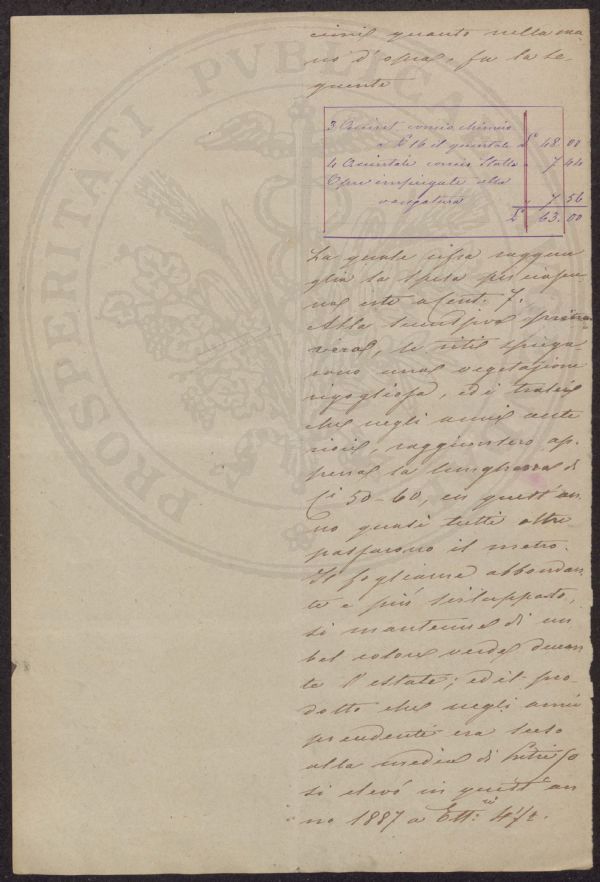 cimi quanto nella ma
no d'opera, fu la se
guente
3 Quint. concio chimico
a £ 16 il quintale £ 48.00
4 Quintali concio Stalla " 7 44
Opere impiegate alla
vangatura " 7.56
£ 63.00
La quale cifra raggua
glia la spesa per ciascu
na vite a Cent. 7.
Alla successiva prima
vera, le viti spiega
rono una vegetazione
rigogliosa, ed i tralci
che negli anni ante
riori, raggiunsero ap
pena la lunghezza di
Ci 50-60, in quest'an
no quasi tutti oltre
passarono il metro.
Il fogliame abbondan
te e più sviluppato,
si mantenne di un
bel colore verde duran
te l'estate; ed il pro-
dotto che negli anni
precedenti era sceso
alla media di Litri 50
si elevó in quest'an
no 1887 a Ett.ri 4 1/2.
PROSPERITATI PVBLICAE